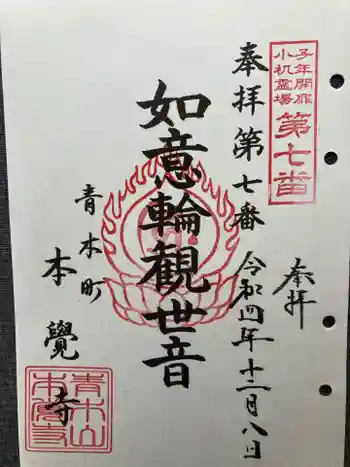 子年開扉
小机霊場
第七番
奉拝第七番
奉拝
令和四年十二月八日
如意輪觀世音
青木町
本覺寺
青木山
本覺寺